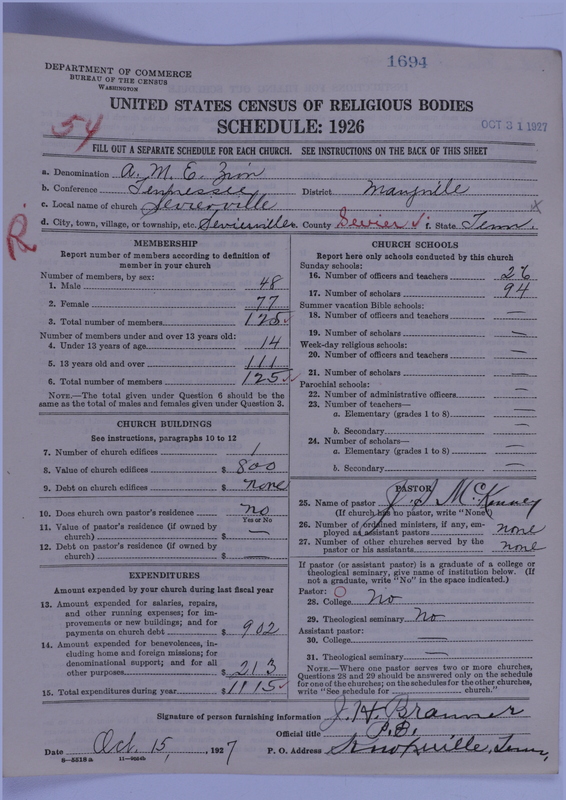 1694
DEPARTMENT OF COMMERCE
BUREAU OF THE CENSUS
WASHINGTON
UNITED STATES CENSUS OF RELIGIOUS BODIES
54
SCHEDULE: 1926
OCT 31 1927
FILL OUT A SEPARATE SCHEDULE FOR EACH CHURCH. SEE INSTRUCTIONS ON THE BACK OF THIS SHEET
a. Denomination A. M. E. Zion
b. Conference Tennessee District Maryville
c. Local name of church Sevierville x
d. City, town, village, or township, etc. Sevierville e. County Sevier ✓ f. State Tenn.
R.
MEMBERSHIP
Report number of members according to definition of
member in your church
Number of members, by sex:
1. Male 48
2. Female 77
3. Total number of members 125 ✓
Number of members under and over 13 years old:
4. Under 13 years of age 14
5. 13 years old and over 111
6. Total number of members 125 ✓
NOTE.—The total given under Question 6 should be the
same as the total of males and females given under Question 3.
CHURCH BUILDINGS
See instructions, paragraphs 10 to 12
7. Number of church edifices 1
8. Value of church edifices $ 800
9. Debt on church edifices $ none
10. Does church own pastor's residence no
Yes or No
11. Value of pastor's residence (if owned by
church) $ —
12. Debt on pastor's residence (if owned by
church) $ —
EXPENDITURES
Amount expended by your church during last fiscal year
13. Amount expended for salaries, repairs,
and other running expenses; for im-
provements or new buildings; and for
payments on church debt $ 902
14. Amount expended for benevolences, in-
cluding home and foreign missions; for
denominational support; and for all
other purposes $ 213
15. Total expenditures during year $ 1115 ✓
CHURCH SCHOOLS
Report here only schools conducted by this church
Sunday schools:
16. Number of officers and teachers 26
17. Number of scholars 94
Summer vacation Bible schools:
18. Number of officers and teachers —
19. Number of scholars —
Week-day religious schools:
20. Number of officers and teachers —
21. Number of scholars —
Parochial schools:
22. Number of administrative officers —
23. Number of teachers—
a. Elementary (grades 1 to 8) —
b. Secondary —
24. Number of scholars—
a. Elementary (grades 1 to 8) —
b. Secondary —
PASTOR
25. Name of pastor J. S. McKinney
(If church has no pastor, write "None")
26. Number of ordained ministers, if any, em-
ployed as assistant pastors none
27. Number of other churches served by the
pastor or his assistants none
If pastor (or assistant pastor) is a graduate of a college or
theological seminary, give name of institution below. (If
not a graduate, write "No" in the space indicated.)
Pastor:
28. College No
29. Theological seminary No
Assistant pastor:
30. College —
31. Theological seminary —
NOTE.—Where one pastor serves two or more churches,
Questions 28 and 29 should be answered only on the schedule
for one of the churches; on the schedules for the other churches,
write "See schedule for church."
Signature of person furnishing information J. H. Branner
Official title P. E.
Date Oct. 15, 1927 P. O. Address Knoxville, Tenn.
8-5318a